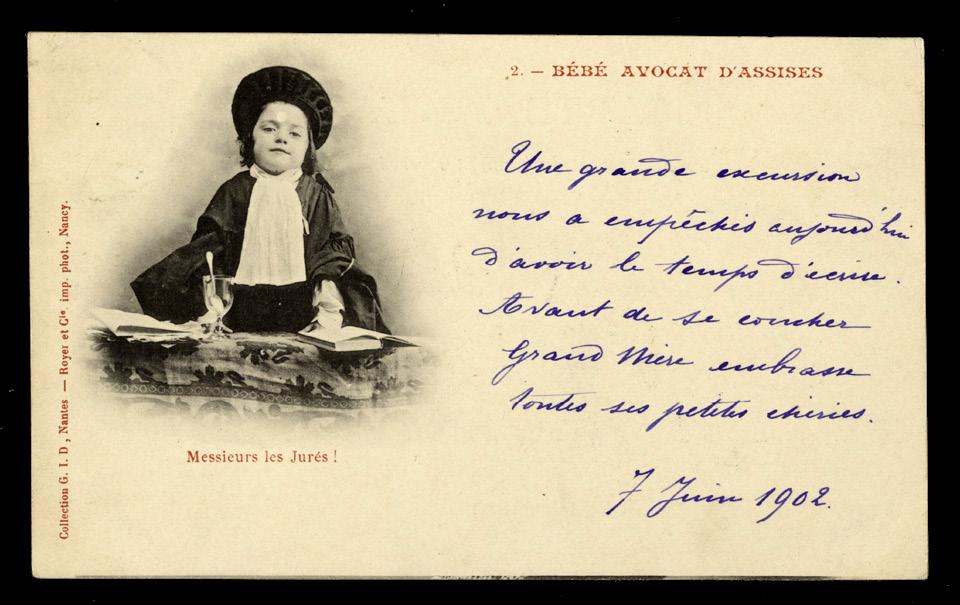 2. — BÉBÉ AVOCAT D'ASSISES
Une grande excursion
nous a empêchés aujourd'hui
d'avoir le temps d'écrire.
Avant de se coucher
Grand Mère embrasse
toutes ses petites chéries.
7 Juin 1902.
Messieurs les Jurés !
Collection G. I. D, Nantes — Royer et Cie, imp. phot., Nancy.